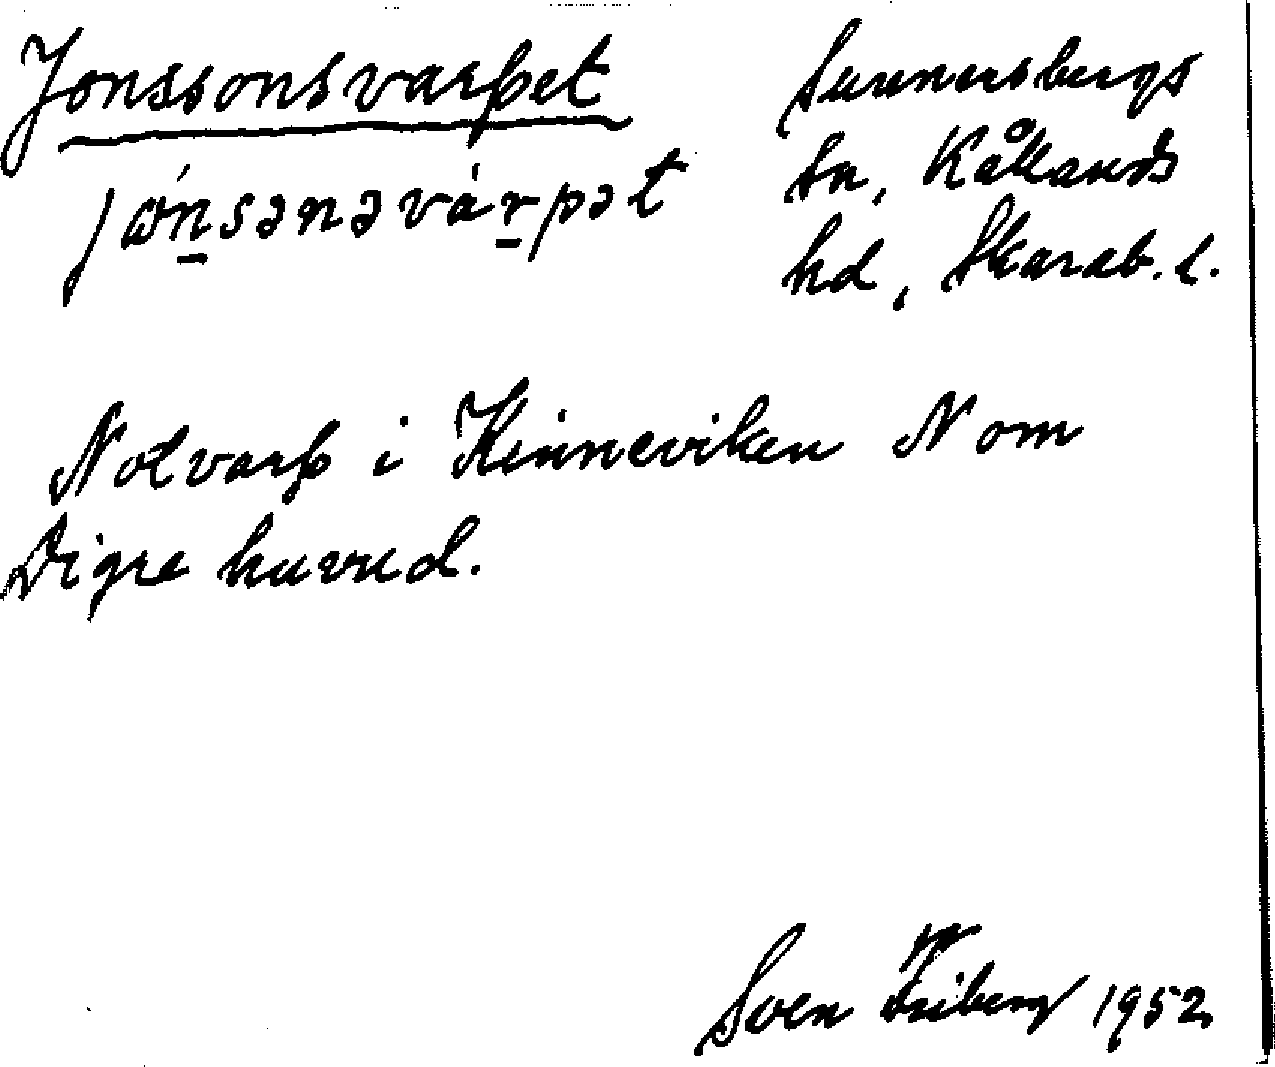 Jonssonsvarpet
jón̲sənəvár̲pət
Sunnersbergs
sn, Kållands
hd, Skarab. l.
Notvarp i Kinneviken N om
Digre huvud.
Sven Friberg 1952